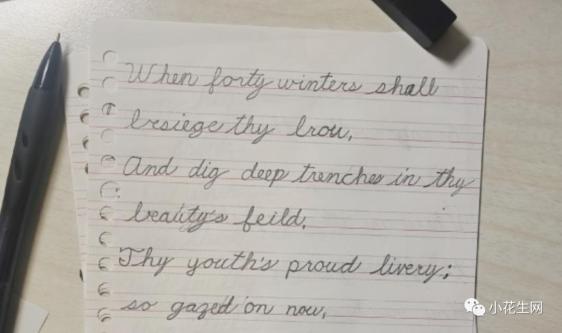 When forty winters shall
besiege thy brow,
And dig deep trenches in thy
beauty's feild,
Thy youth's proud livery;
so gazed on now,
小花生网